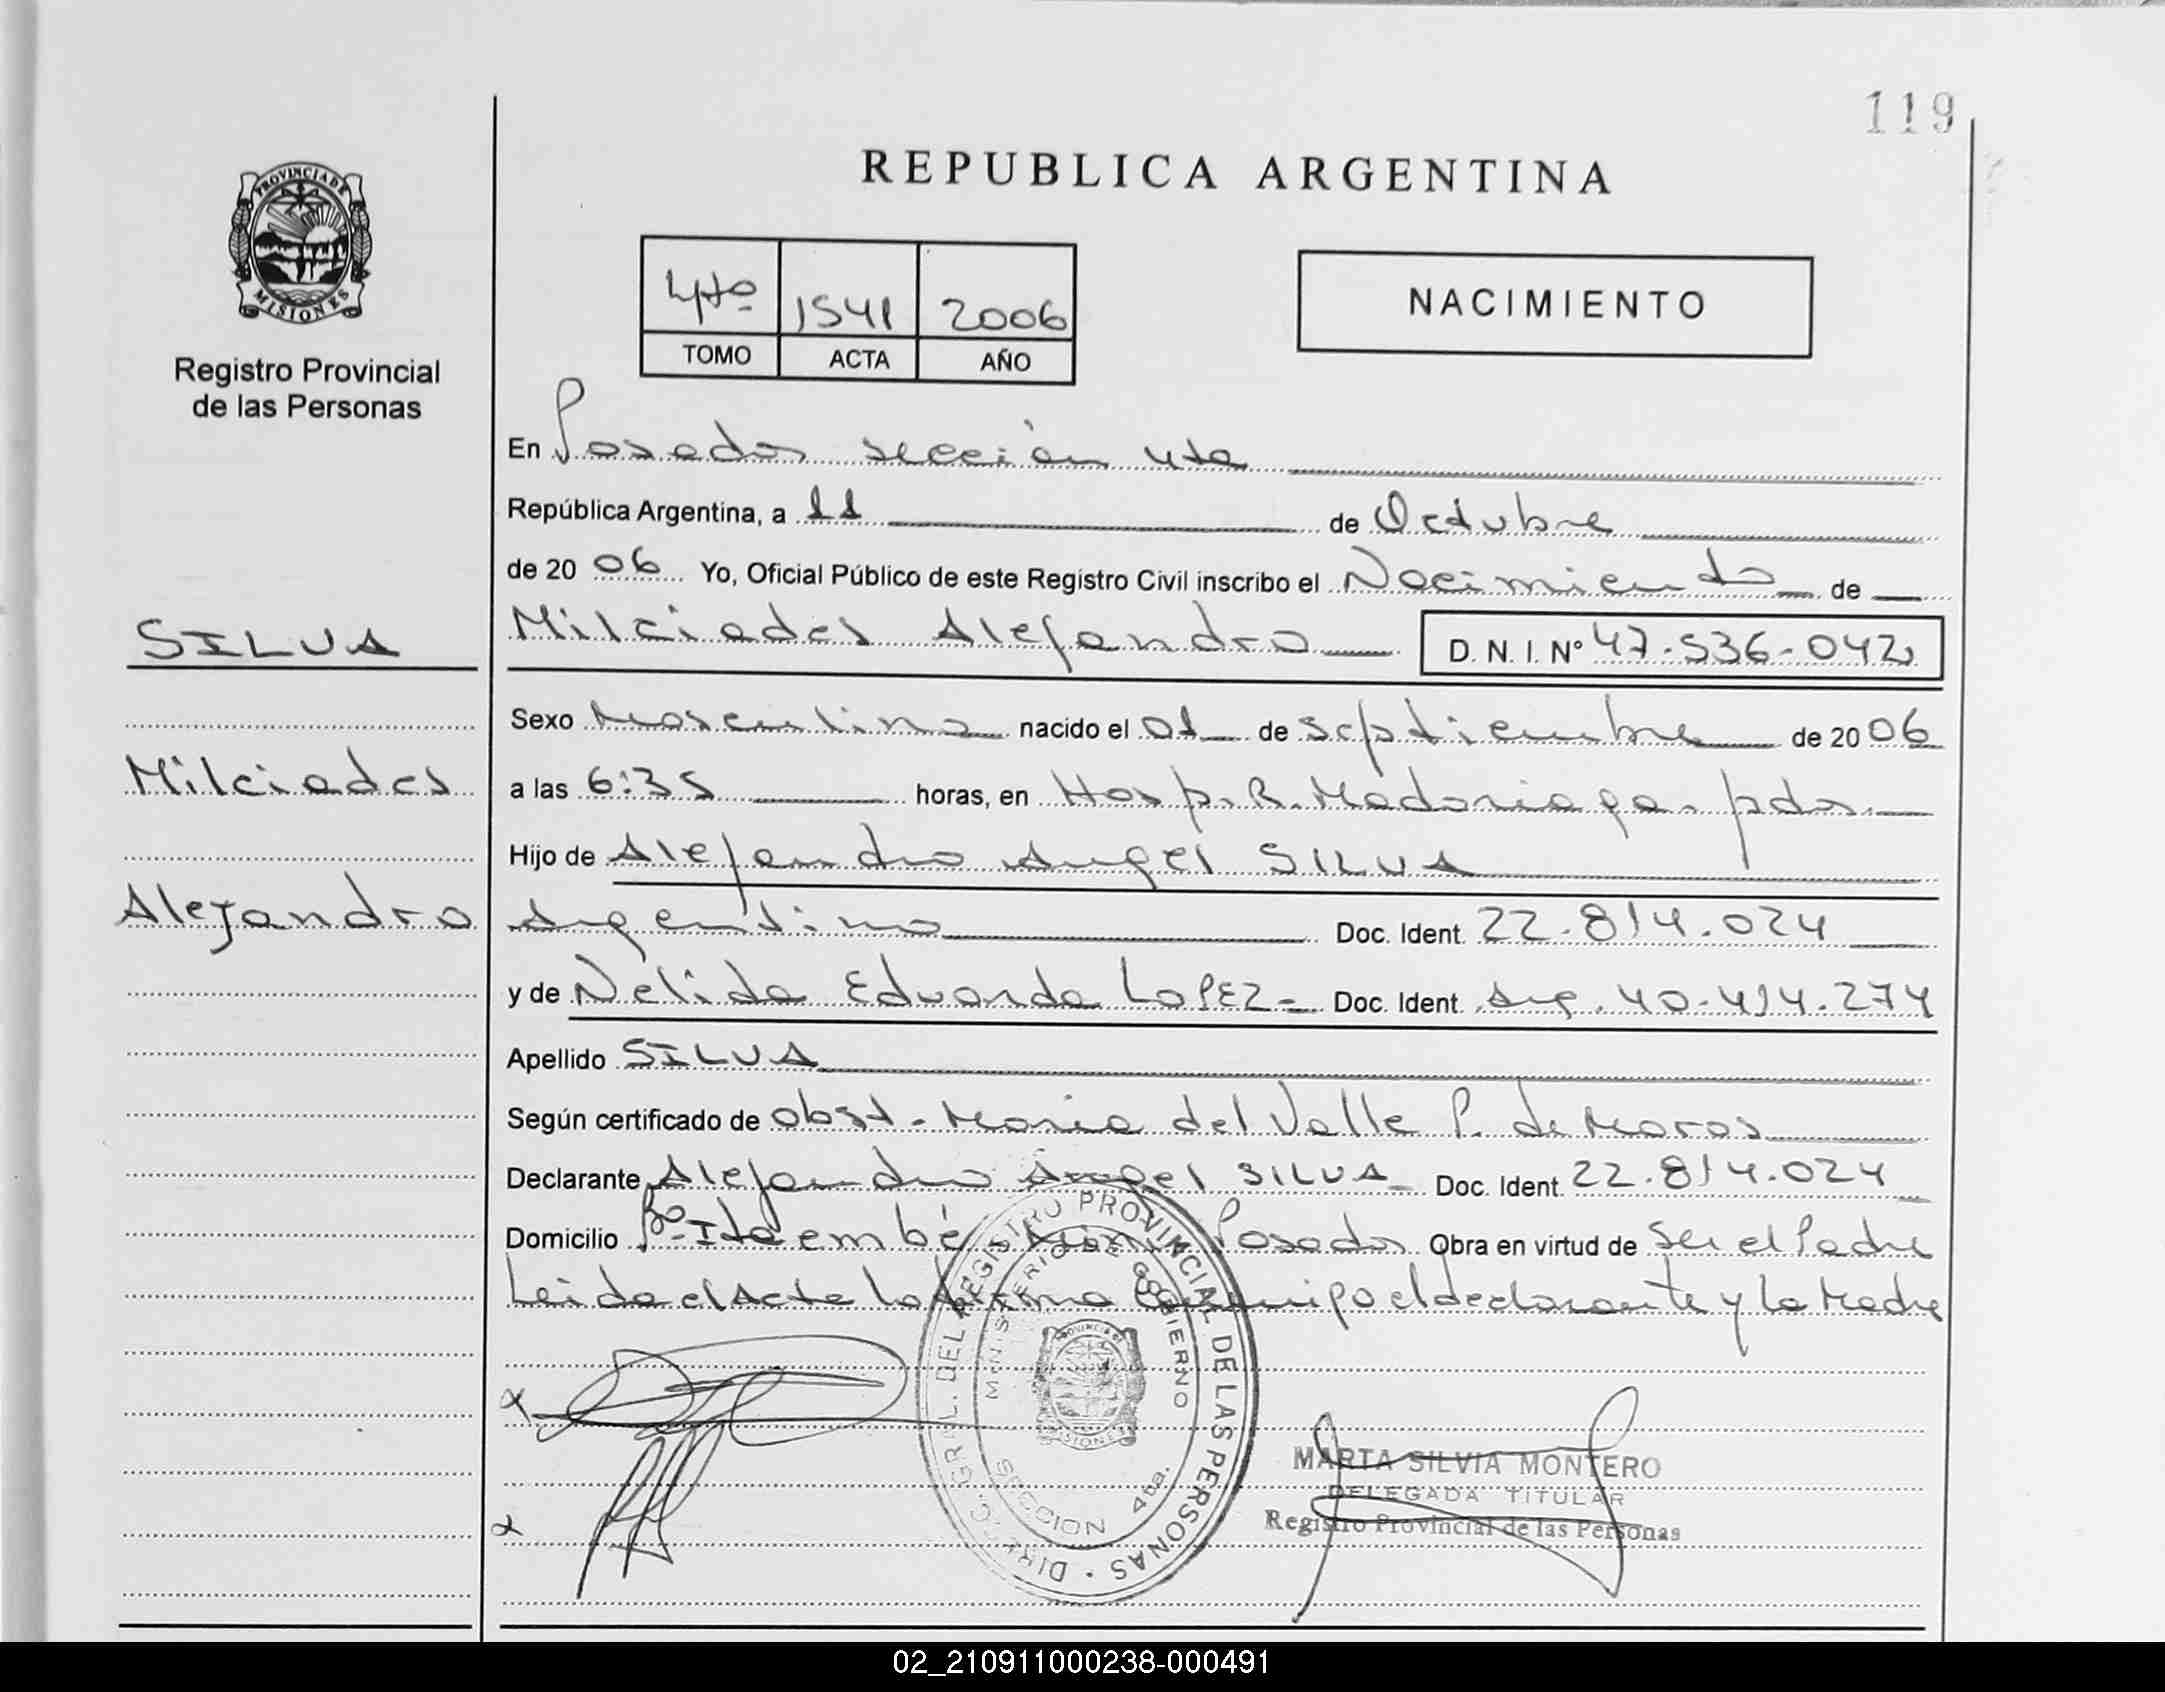 119
REPUBLICA ARGENTINA
PROVINCIA DE
MISIONES
Registro Provincial
de las Personas
4to 1541 2006
TOMO ACTA AÑO
NACIMIENTO
En Posadas sección 4ta
República Argentina, a 11 de Octubre
de 20 06 Yo, Oficial Público de este Registro Civil inscribo el Nacimiento de
SILVA
Milciades Alejandro D. N. I. Nº 47.536.042
Sexo Masculino nacido el 01 de septiembre de 20 06
Milciades
a las 6:35 horas, en Hosp. R. Madariaga - pdas.
Hijo de Alejandro Angel SILVA
Alejandro
Argentino Doc. Ident. 22.814.024
y de Nélida Eduarda LOPEZ - Doc. Ident. Arg. 40.414.274
Apellido SILVA
Según certificado de obst. Maria del Valle P. de
Declarante Alejandro Angel SILVA Doc. Ident. 22.814.024
Domicilio Bº Itaembé Mini Posadas Obra en virtud de ser el Padre
Leida el Acta la firma conmigo el declarante y la Madre
DIREC. GRAL. DEL REGISTRO PROVINCIAL DE LAS PERSONAS
MINISTERIO DE GOBIERNO
PROVINCIA DE
MISIONES
SECCION 4ta.
MARTA SILVIA MONTERO
DELEGADA TITULAR
Registro Provincial de las Personas
02_210911000238-000491